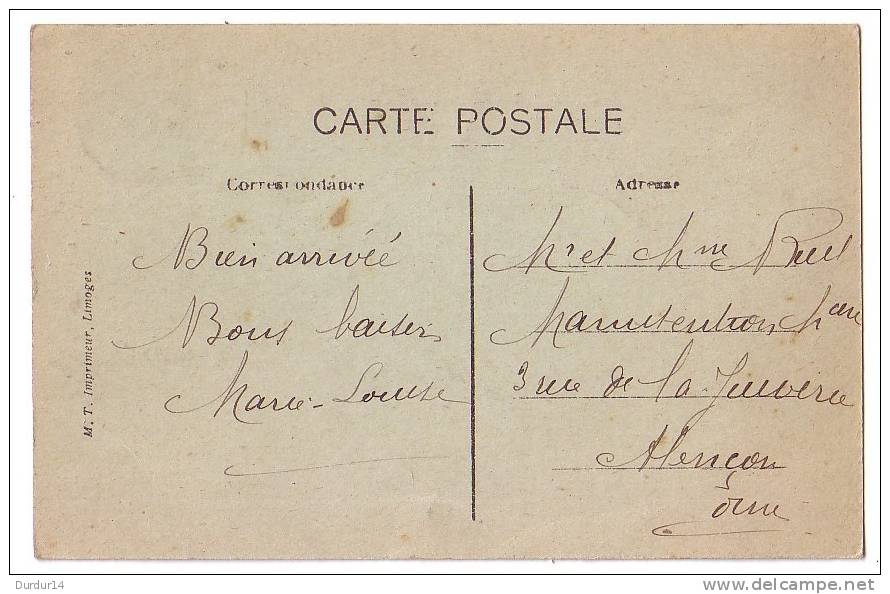 CARTE POSTALE
Correspondance
Adresse
Bien arrivée
Bons baisers
Marie-Louise
Mr et Mme
Manutention
3 rue de la Juiverie
Alençon
Orne
M. T. Imprimeur, Limoges
Durdur14
delcampe.net